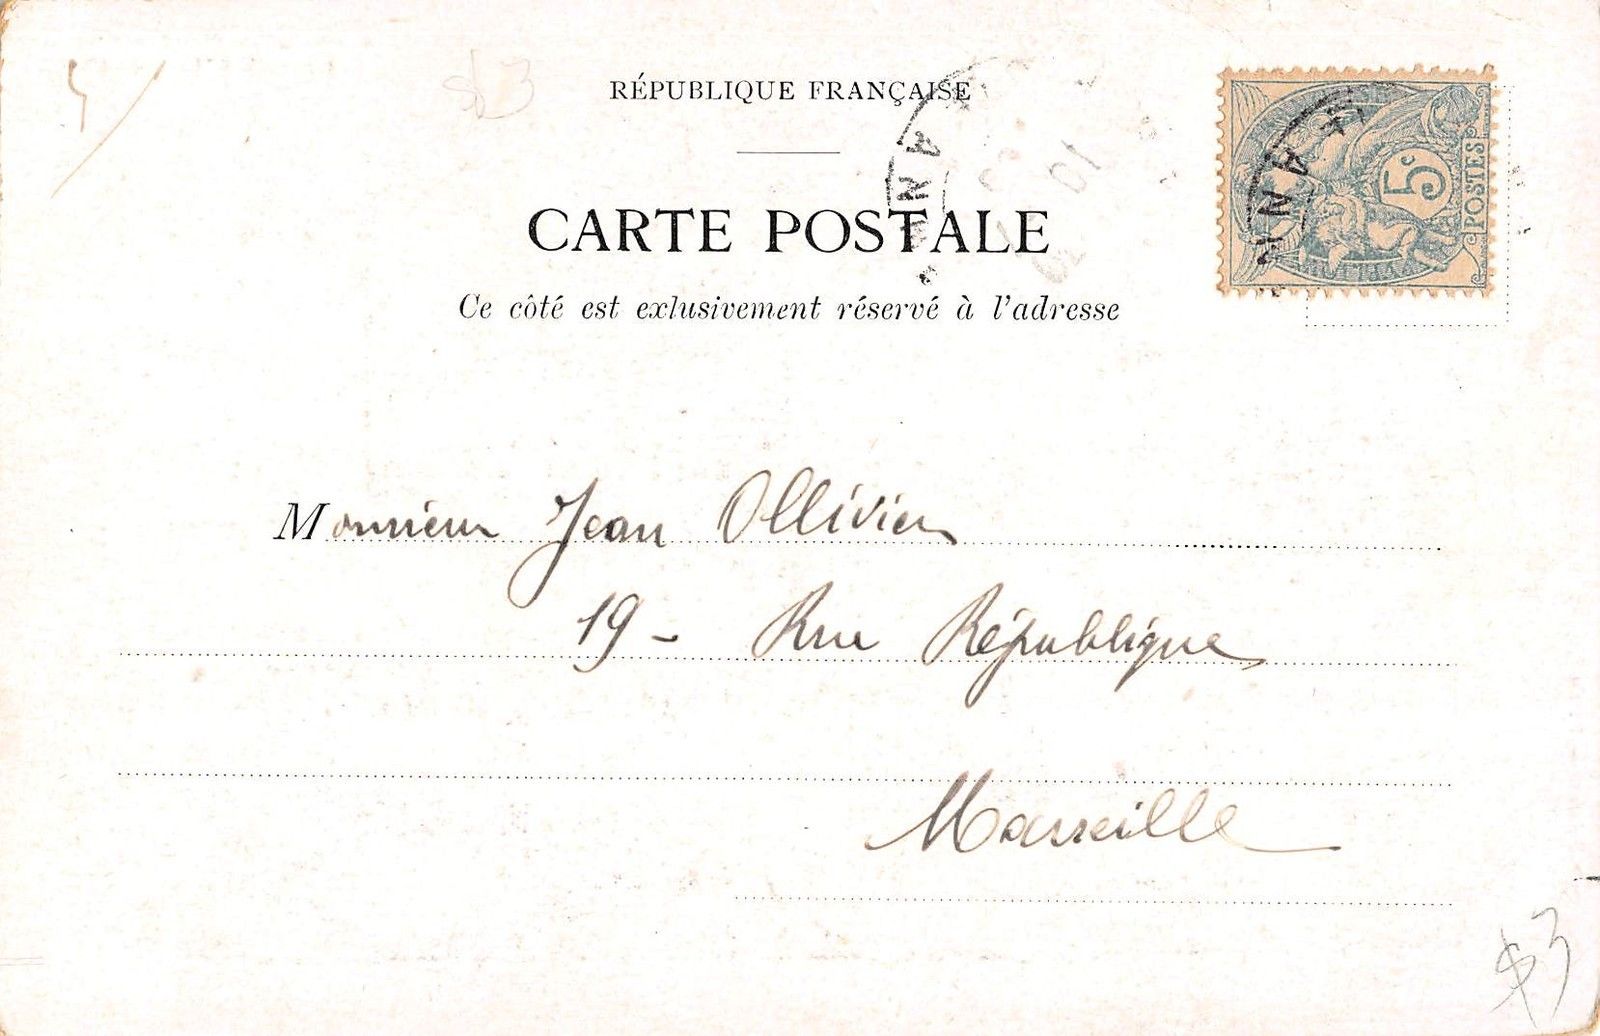 $3
RÉPUBLIQUE FRANÇAISE
CARTE POSTALE
Ce côté est exlusivement réservé à l'adresse
5c
POSTES
Monsieur Jean Ollivier
19 - Rue République
Marseille
$3